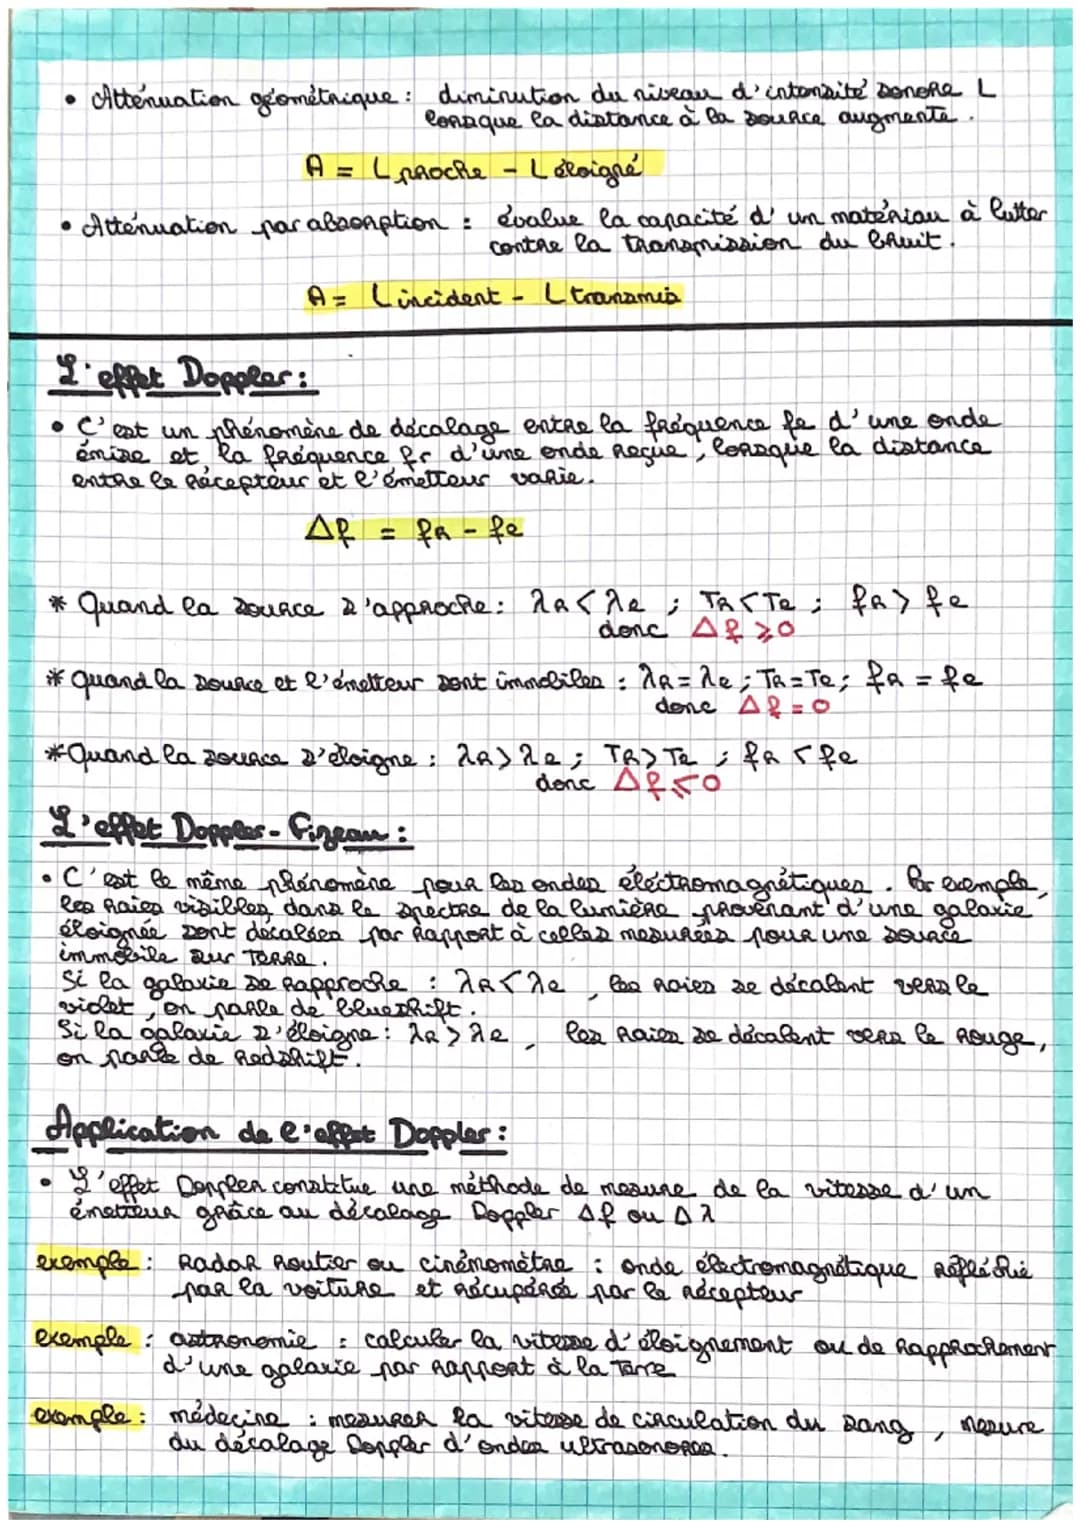 • Atténuation géométrique : diminution du niveau d'intensité sonore L
lorsque la distance à la source augmente.
A = L proche - L éloigné
• Atténuation par absorption : évalue la capacité d'un matériau à lutter
contre la transmission du bruit.
A = L incident - L transmis
L'effet Doppler :
• C'est un phénomène de décalage entre la fréquence fe d'une onde
émise et la fréquence fr d'une onde reçue, lorsque la distance
entre le récepteur et l'émetteur varie.
Δf = fR - fe
* Quand la source s'approche : λR < λe ; TR < Te ; fR > fe
donc Δf ⩾ 0
* quand la source et l'émetteur sont immobiles : λR = λe ; TR = Te ; fR = fe
donc Δf = 0
* Quand la source s'éloigne : λR > λe ; TR > Te ; fR < fe
donc Δf ⩽ 0
L'effet Doppler - Fizeau :
• C'est le même phénomène pour les ondes électromagnétiques. Par exemple,
les raies visibles dans le spectre de la lumière provenant d'une galaxie
éloignée sont décalées par rapport à celles mesurées pour une source
immobile sur Terre.
Si la galaxie se rapproche : λR < λe, les raies se décalent vers le
violet, on parle de blueshift.
Si la galaxie s'éloigne : λR > λe, les raies se décalent vers le rouge,
on parle de Redshift.
Application de l'effet Doppler :
• L'effet Doppler constitue une méthode de mesure de la vitesse d'un
émetteur grâce au décalage Doppler Δf ou Δλ
exemple : Radar Routier ou cinémomètre : onde électromagnétique réfléchie
par la voiture et récupérée par le récepteur
exemple : astronomie : calculer la vitesse d'éloignement ou de Rapprochement
d'une galaxie par rapport à la Terre
exemple : médecine : mesurer la vitesse de circulation du sang, mesure
du décalage Doppler d'ondes ultrasonores.